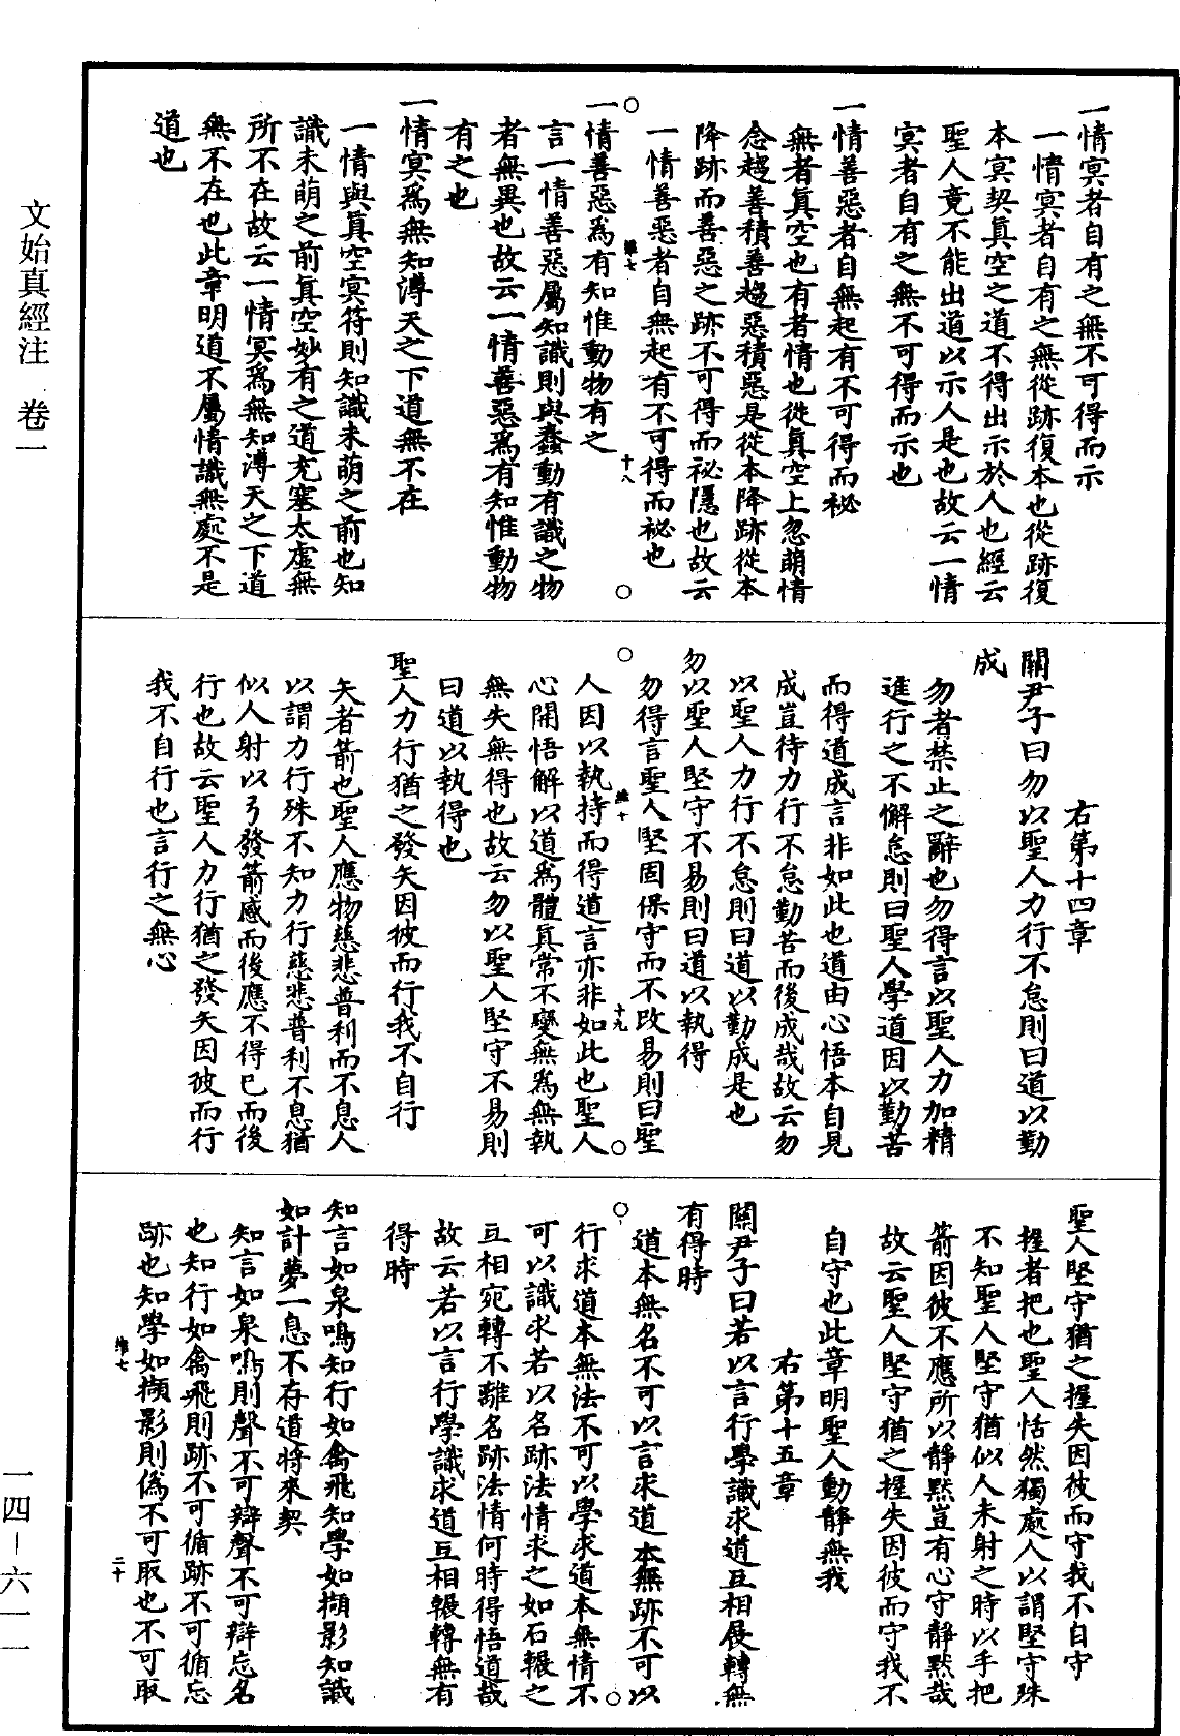 一情冥者自有之無不可得而示
一情冥者自有之無從跡復本也從跡復
本冥契真空之道不得出示於人也經云
聖人竟不能出道以示人是也故云一情
冥者自有之無不可得而示也
一情善惡者自無起有不可得而祕
無者眞空也有者情也從眞空上忽萌情
念趍善積善趍惡積惡是從本降跡從本
降跡而善惡之跡不可得而祕隱也故云
一情善惡者自無起有不可得而祕也
維七
十八
一情善惡爲有知惟動物有之
言一情善惡屬知識則與蠢動有識之物
者無異也故云一情善惡爲有知惟動物
有之也
一情冥爲無知溥天之下道無不在
一情與眞空冥符則知識未萌之前也知
識未萌之前真空妙有之道充塞太虛無
所不在故云一情冥爲無知溥天之下道
無不在也此章明道不屬情識無處不是
道也
右第十四章
關尹子曰勿以聖人力行不怠則曰道以勤
成
勿者禁止之辭也勿得言以聖人力加精
進行之不懈怠則曰聖人學道因以勤苦
而得道成言非如此也道由心悟本自見
成豈待力行不怠勤苦而後成哉故云勿
以聖人力行不怠則曰道以勤成是也
勿以聖人堅守不易則曰道以執得
勿得言聖人堅固保守而不改易則曰聖
十九
人因以執持而得道言亦非如此也聖人
心開悟解以道爲體真常不變無爲無執
無失無得也故云勿以聖人堅守不易則
曰道以執得也
聖人力行猶之發矢因彼而行我不自行
矢者箭也聖人應物慈悲普利而不息人
以謂力行殊不知力行慈悲普利不息猶
似人射以弓發箭感而後應不得已而後
行也故云聖人力行猶之發矢因彼而行
我不自行也言行之無心
聖人堅守猶之握矢因彼而守我不自守
握者把也聖人恬然獨處人以謂堅守殊
不知聖人堅守猶似人未射之時以手把
箭因彼不應所以靜默豈有心守靜默哉
故云聖人堅守猶之握矢因彼而守我不
自守也此章明聖人動靜無我
右第十五章
關尹子曰若以言行學識求道互相展轉無
有得時
道本無名不可以言求道本無跡不可以
行求道本無法不可以學求道本無情不
可以識求若以名跡法情求之如石輾之
互相宛轉不離名跡法情何時得悟道哉
故云若以言行學識求道互相輾轉無有
得時
知言如泉鳴知行如禽飛知學如擷影知識
如計夢一息不存道將來契
知言如泉鳴則聲不可辯聲不可辯忘名
也知行如禽飛則跡不可循跡不可循忘
跡也知學如擷影則僞不可取也不可取
維七
二十
文始真經注　卷一
一四—六一一